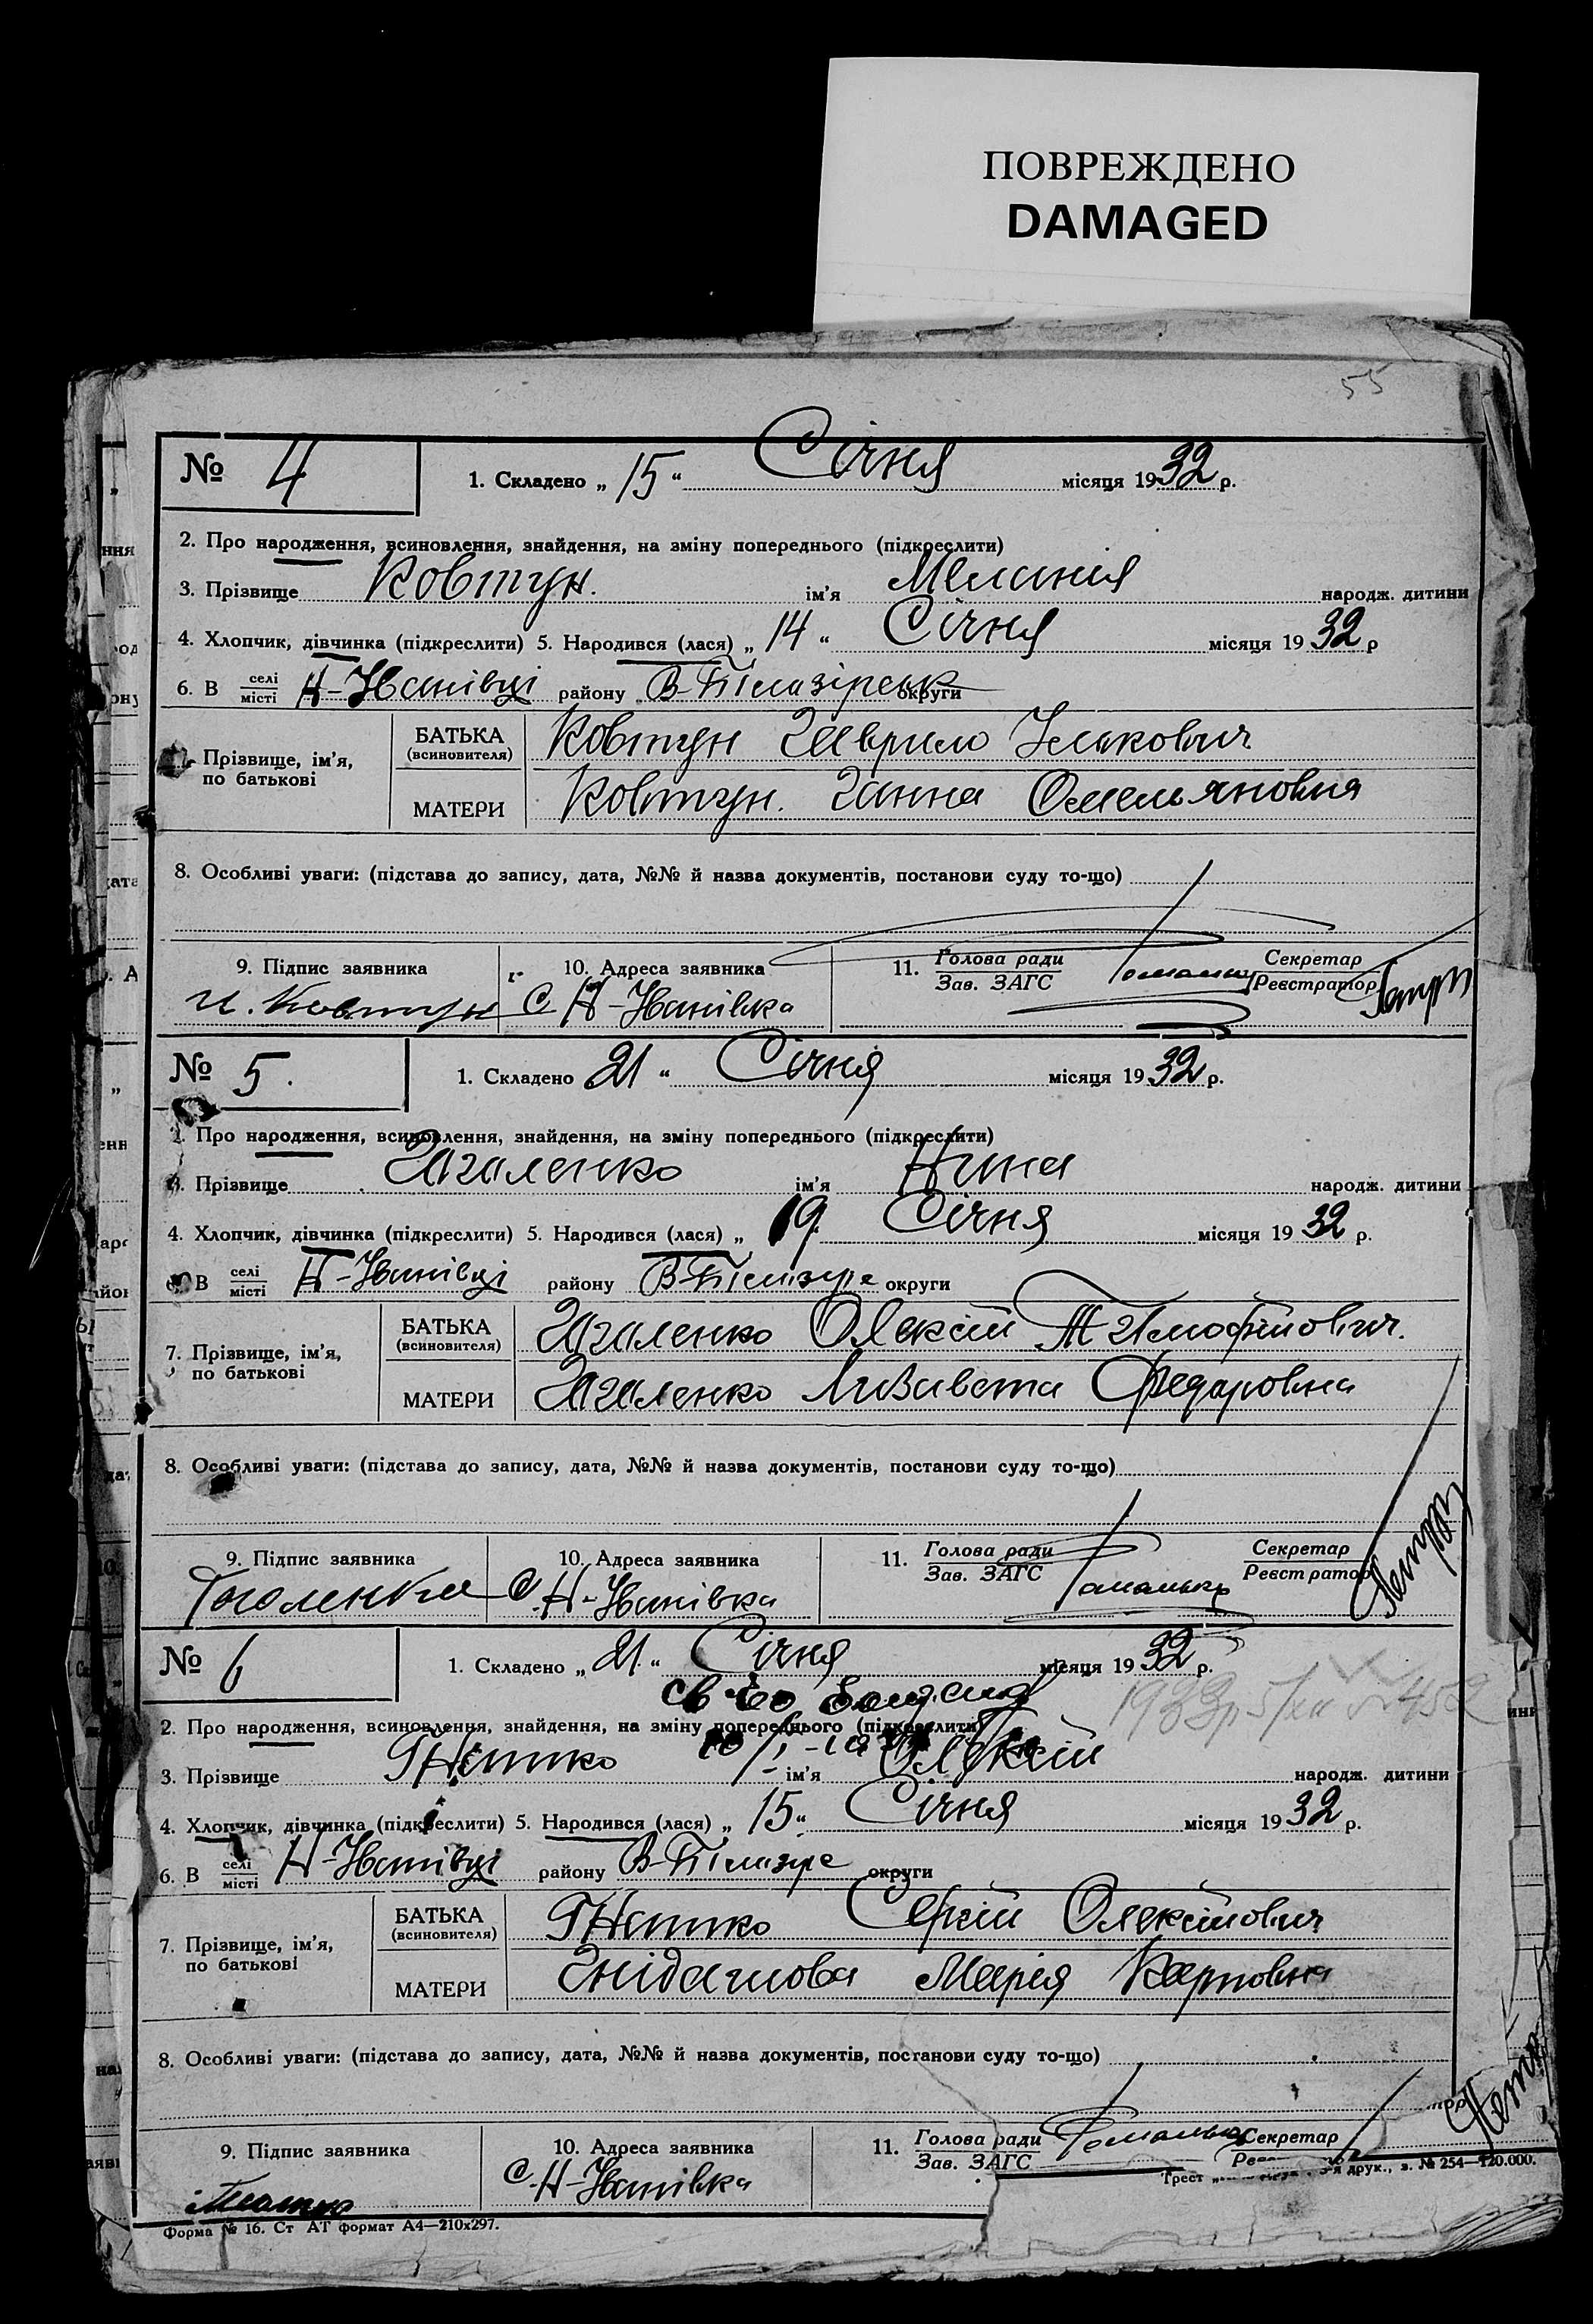 ПОВРЕЖДЕНО
DAMAGED
55
№ 4 1. Складено „ 15 “ Січня місяця 1932 р.
2. Про народження, всиновлення, знайдення, на зміну попереднього (підкреслити)
3. Прізвище Ковтун. ім'я Меланія народж. дитини
4. Хлопчик, дівчинка (підкреслити) 5. Народився (лася) „ 14 “ Січня місяця 1932 р
6. В селі місті Н-Іванівці району В-Білозірськ округи
Прізвище, ім'я, по батькові
БАТЬКА (всиновителя) Ковтун Гаврило Ількович
МАТЕРИ Ковтун. Ганна Омельяновна
8. Особливі уваги: (підстава до запису, дата, №№ й назва документів, постанови суду то-що)
9. Підпис заявника 10. Адреса заявника 11. Голова ради Зав. ЗАГС Секретар Реєстратор
Ковтун С Н-Іванівка
№ 5. 1. Складено 21 “ Січня місяця 1932 р.
2. Про народження, всиновлення, знайдення, на зміну попереднього (підкреслити)
3. Прізвище Гаголенко ім'я Нина народж. дитини
4. Хлопчик, дівчинка (підкреслити) 5. Народився (лася) „ 19 Січня місяця 1932 р.
6. В селі місті Н-Іванівці району округи
7. Прізвище, ім'я, по батькові
БАТЬКА (всиновителя) Гаголенко Олексій Тимофійович.
МАТЕРИ Гаголенко Лизавета Федаровна
8. Особливі уваги: (підстава до запису, дата, №№ й назва документів, постанови суду то-що)
9. Підпис заявника 10. Адреса заявника 11. Голова ради Зав. ЗАГС Секретар Реєстратор
С. Н-Іванівка
№ 6 1. Складено „ 21 “ Січня місяця 1932 р.
2. Про народження, всиновлення, знайдення, на зміну попереднього (підкреслити)
3. Прізвище ім'я Олексій народж. дитини
4. Хлопчик, дівчинка (підкреслити) 5. Народився (лася) „ 15 “ Січня місяця 1932 р.
6. В селі місті Н-Іванівці району округи
7. Прізвище, ім'я, по батькові
БАТЬКА (всиновителя) Сергій Олексійович
МАТЕРИ Марія Карповна
8. Особливі уваги: (підстава до запису, дата, №№ й назва документів, постанови суду то-що)
9. Підпис заявника 10. Адреса заявника 11. Голова ради Зав. ЗАГС Секретар
С. Н-Іванівка
Трест друк., з. № 254—120.000.
Форма № 16. Ст АТ формат А4—210х297.